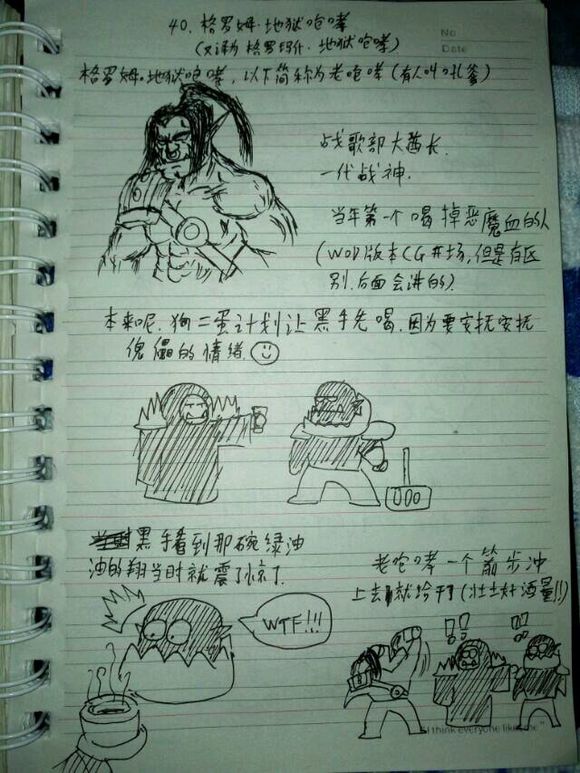 No
Date
40. 格罗姆·地狱咆哮
(又译为 格罗玛什·地狱咆哮)
格罗姆·地狱咆哮,以下简称为老咆哮(有人叫吼爹)
战歌部大酋长.
一代战神.
当年第一个喝掉恶魔血的人
(WOD版本CG开场,但是有区
别.后面会讲的)
本来呢.狗二蛋计划让黑手先喝.因为要安抚安抚
傀儡的情绪.
黑手看到那碗绿油
油的翔当时就震了惊了.
WTF!!!
老咆哮一个箭步冲
上去就给干了(壮士好酒量!!)
!!
!!
"I think everyone likes me"